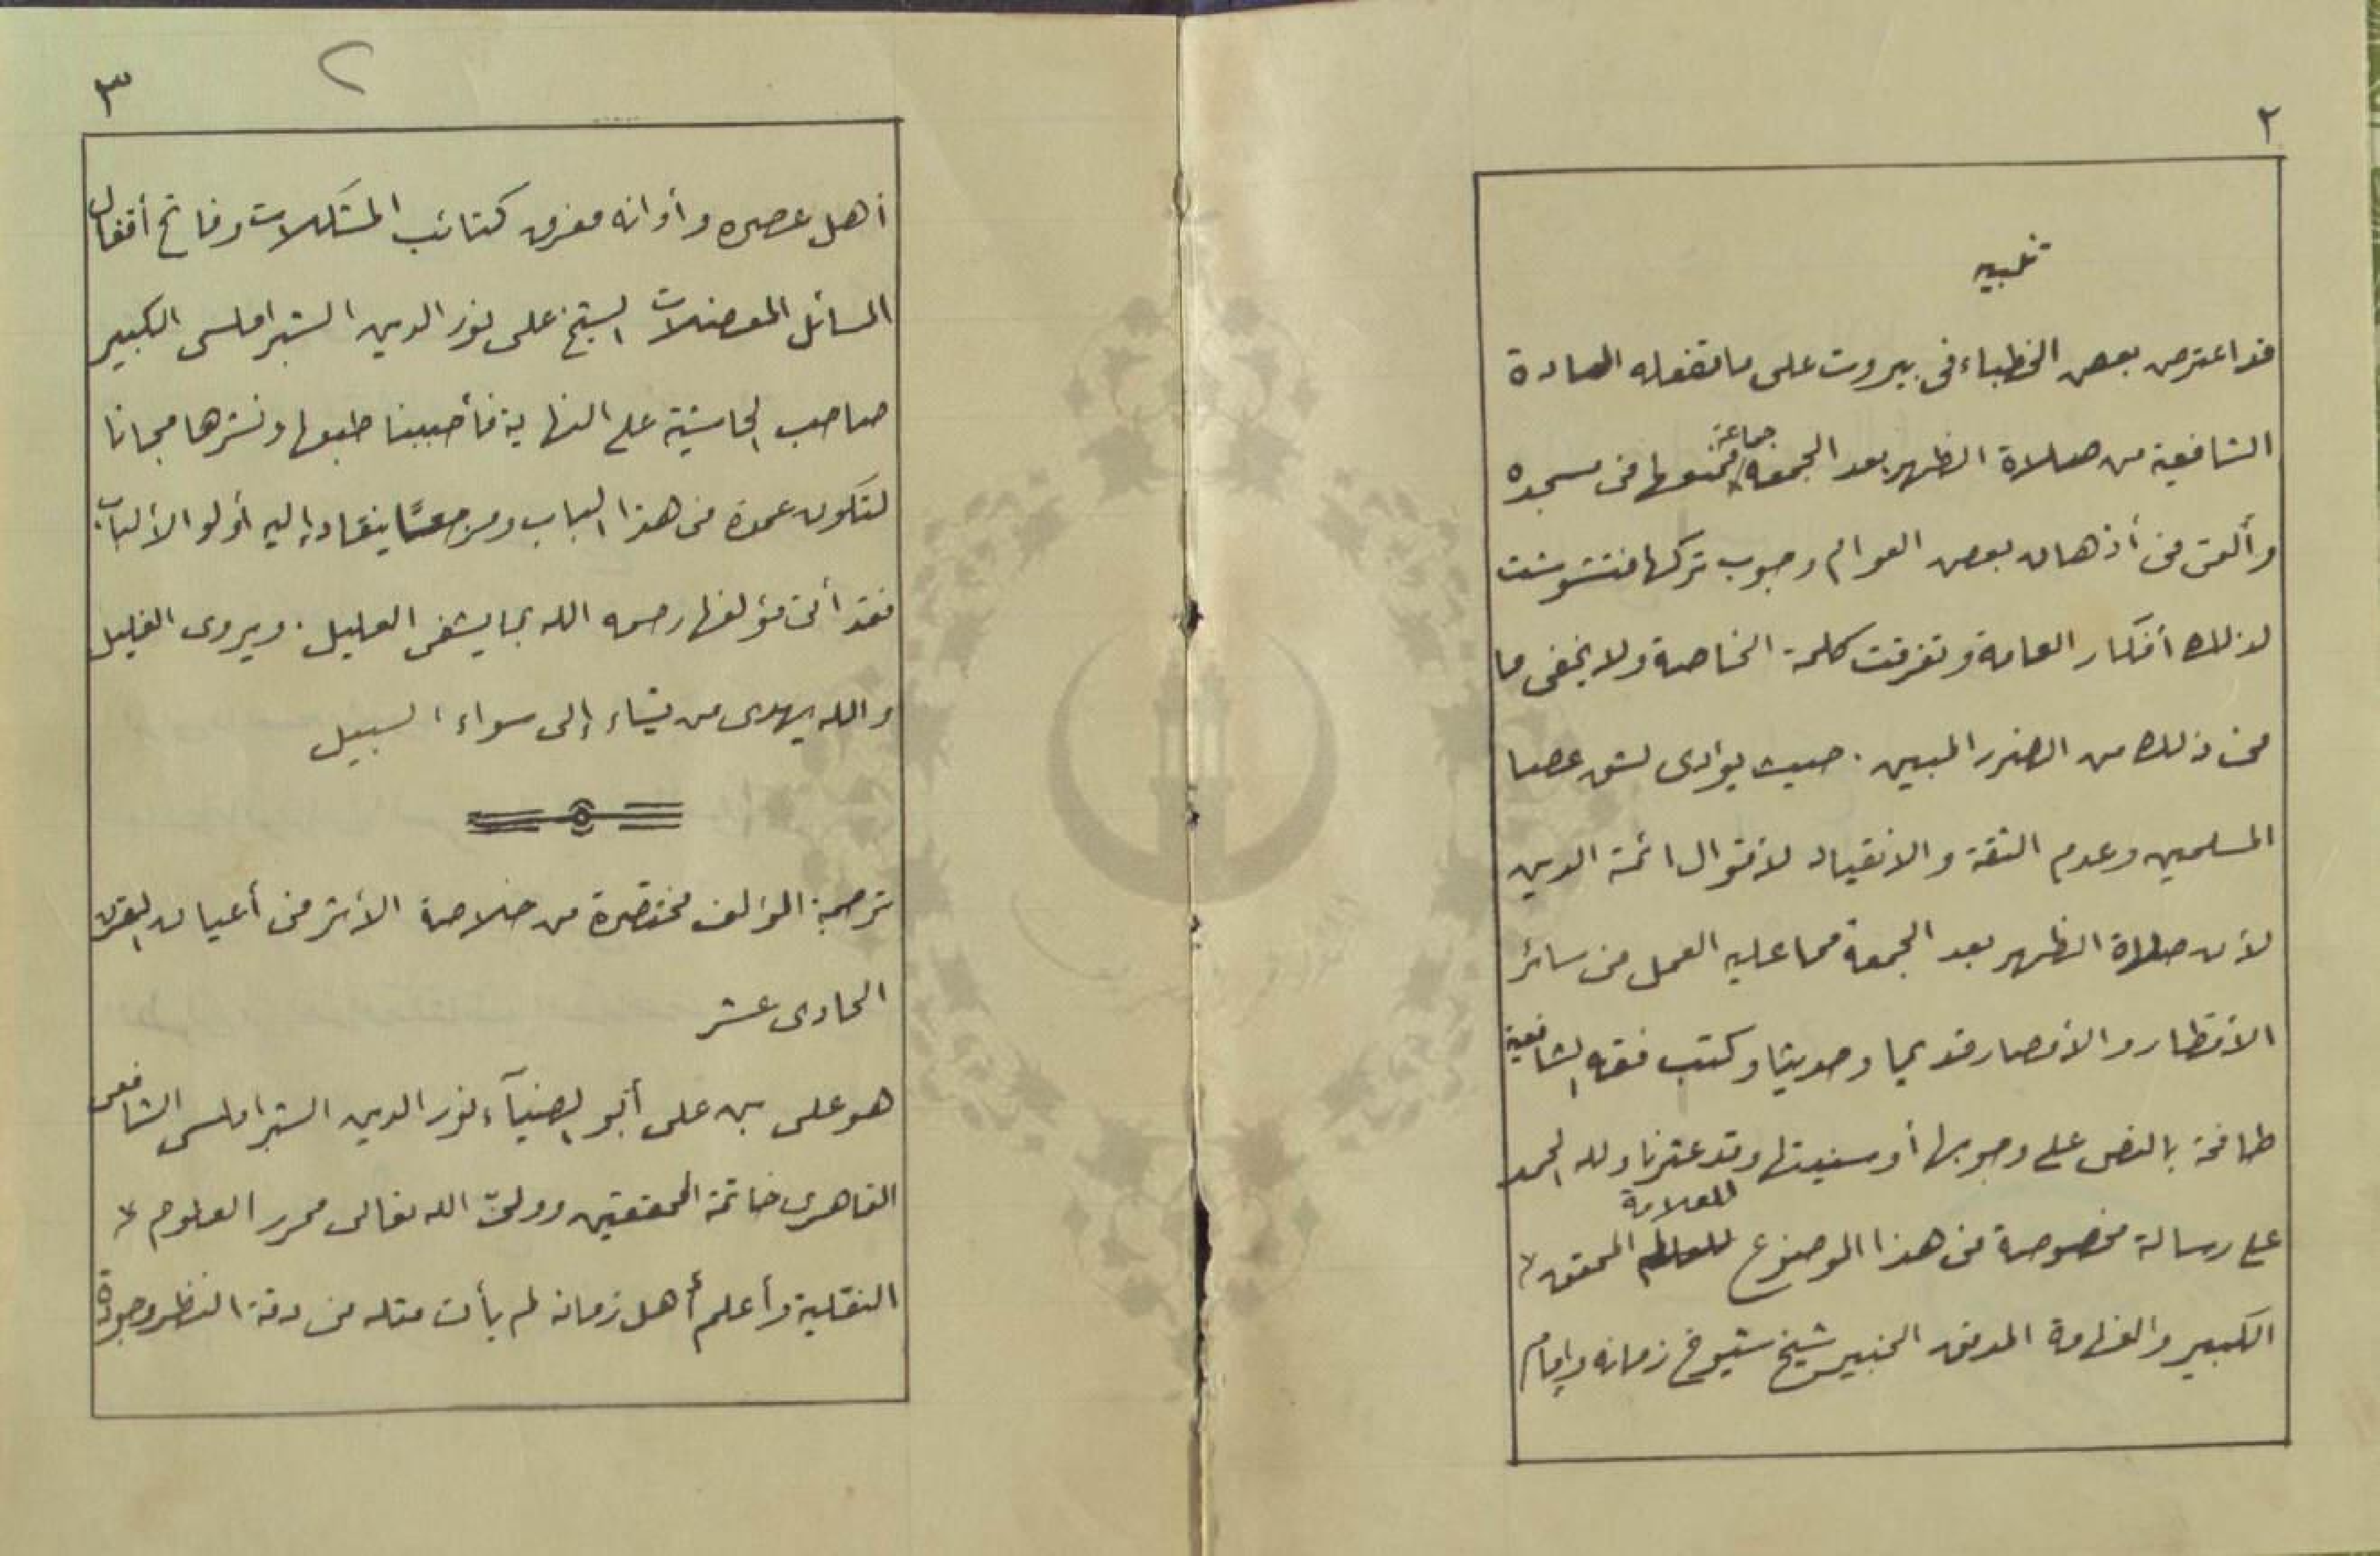 ٢
تنبيه
قد اعترض بعض الخطباء فى بيروت على ما تفعله السادة
الشافعية من صلاة الظهر بعد الجمعة جماعة فمنعها فى مسجده
وألقى فى أذهان بعض العوام وجوب تركها فتشوشت
لذلك أفكار العامة وتفرقت كلمة الخاصة ولا يخفى ما
فى ذلك من الضرر المبين . حيث يؤدى لشق عصا
المسلمين وعدم الثقة والانقياد لأقوال ائمة الدين
لأن صلاة الظهر بعد الجمعة مما عليه العمل فى سائر
الأقطار والأمصار قديما وحديثا وكتب فقه الشافعية
طافحة بالنص على وجوبها أو سنيتها وقد عثرنا ولله الحمد
على رسالة مخصوصة فى هذا الموضوع للعلامة المحقق
الكبير والفهامة المدقق الخبير شيخ شيوخ زمانه وإمام
٣
٢
أهل عصره وأوانه مفرق كتائب المشكلات وفاتح أقفال
المسائل المعضلات الشيخ على نور الدين الشبراملسى الكبير
صاحب الحاشية على النهاية فأحببنا طبعها ونشرها مجانا
لتكون عمدة فى هذا الباب ومرجعًا ينقاد إليه أولو الألباب
فقد أتى مؤلفها رحمه الله بما يشفى العليل . ويروى الغليل
والله يهدى من يشاء إلى سواء السبيل
ترجمة المؤلف مختصرة من خلاصة الأثر فى أعيان القرن
الحادى عشر
هو على بن على أبو الضيآء نور الدين الشبراملسى الشافعى
القاهرى خاتمة المحققين وولىّ الله تعالى محرر العلوم
النقلية وأعلم أهل زمانه لم يأت مثله فى دقة النظر وجودة